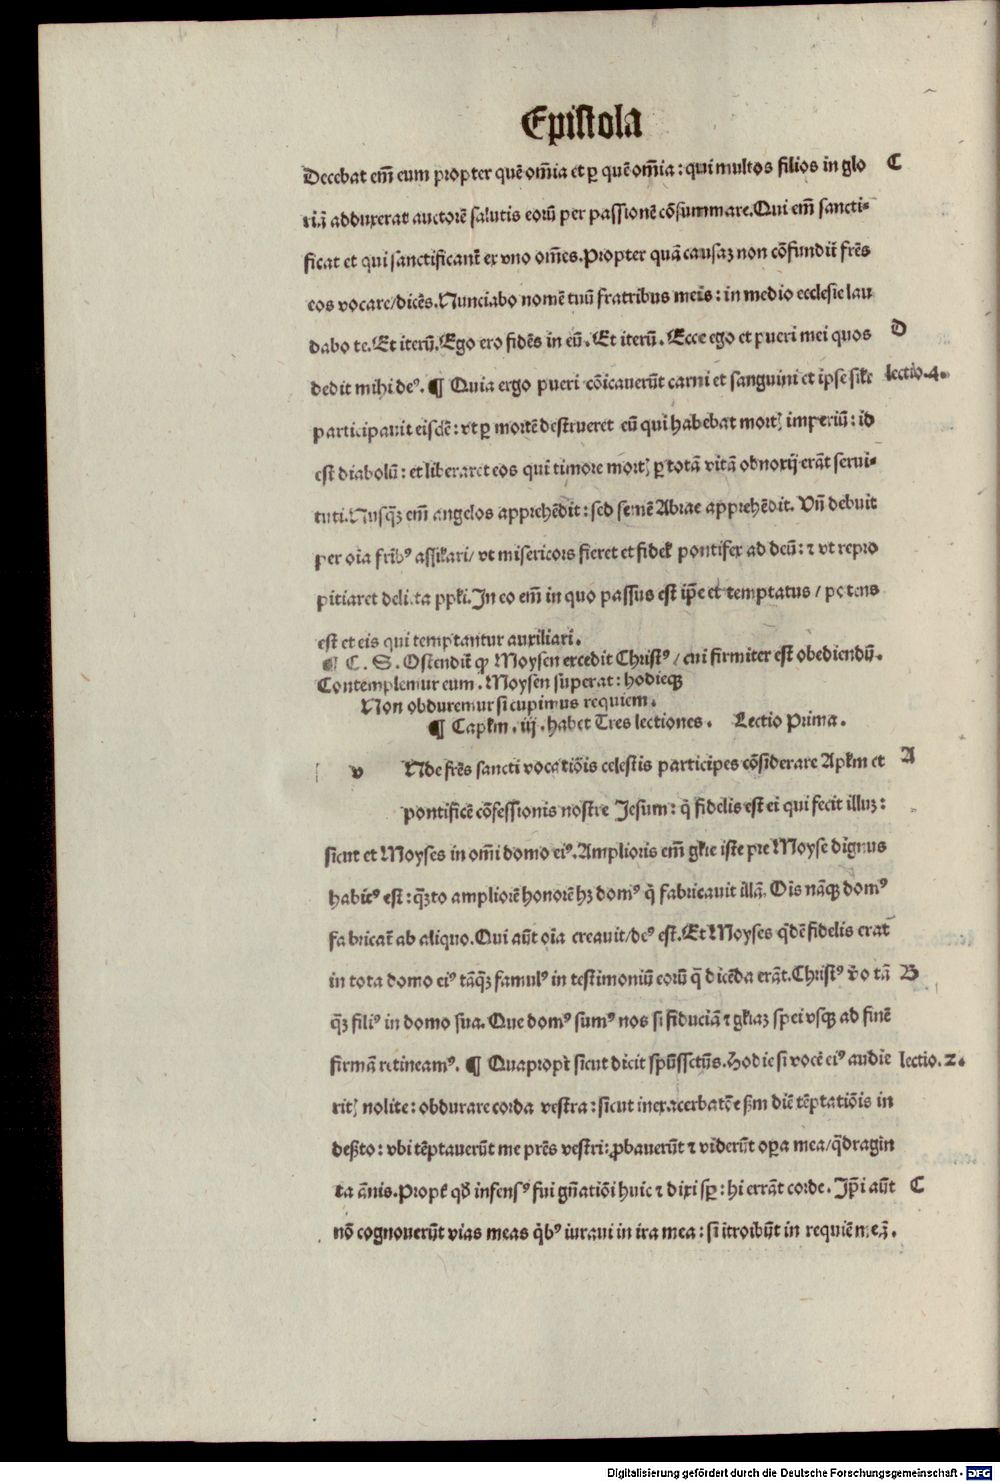 Epistola
Decebat em̄ eum propter quē om̄ia et ꝑ quē om̄ia : qui multos filios in glo C
riā adduxerat auctorē salutis eorū per passionē cōsummare. Qui em̄ sancti⸗
ficat et qui sanctificant᷑ ex vno om̄es. Propter quā causaꝫ non cōfundit᷑ fr̄es
eos vocare/ dicēs. Nunciabo nomē tuū fratribus meis : in medio ecclesie lau
dabo te. Et iterū. Ego ero fidēs in eū. Et iterū. Ecce ego et pueri mei quos D
dedit mihi deꝰ. ¶ Quia ergo pueri cōicauerūt carni et sanguini et ipse silr̄ lectio.4.
participauit eisdē : vt ꝑ mortē destrueret eū qui habebat mortꝭ imperiū : id
est diabolū : et liberaret eos qui timore mortꝭ ꝑ totā vitā obnoxij erāt serui⸗
tuti. Nusq̄ꝫ em̄ angelos apprehēdit : sed semē Abrae apprehēdit. Vn̄ debuit
per oīa fr̄ibꝰ assilari/ vt misericors fieret et fidel' pontifex ad deū : ⁊ vt repro
pitiaret delicta ppl'i. In eo em̄ in quo passus est ip̄e et temptatus / potens
est et eis qui temptantur auxiliari.
¶ C. S. Ostendit᷑ ꝙ Moysen excedit Christꝰ / cui firmiter est obediendū.
Contemplemur eum. Moysen superat : hodieqꝫ
Non obduremur si cupimus requiem.
¶ Capl'm. iij. habet Tres lectiones. Lectio Prima.
v Nde fr̄es sancti vocatiōis celestis participes cōsiderare Apl'm et A
pontificē cōfessionis nostre Jesum : q̄ fidelis est ei qui fecit illuꝫ :
sicut et Moyses in om̄i domo eiꝰ. Amplioris em̄ gl'ie iste pre Moyse dignus
habitꝰ est : q̄ꝫto ampliorē honorē hꝫ domꝰ q̄ fabricauit illā. Oīs nāqꝫ domꝰ
fabricat᷑ ab aliquo. Qui aūt oīa creauit/ deꝰ est. Et Moyses q̄dē fidelis erat
in tota domo eiꝰ tāq̄ꝫ famulꝰ in testimoniū eorū q̄ dicēda erāt. Christꝰ v̄o tā B
q̄ꝫ filiꝰ in domo sua. Que domꝰ sumꝰ nos si fiduciā ⁊ gl'iaꝫ spei vsqꝫ ad finē
firmā retineamꝰ. ¶ Quapropt᷑ sicut dicit spūssctūs. Hodie si vocē eiꝰ audie lectio.2.
ritꝭ nolite : obdurare corda vestra : sicut in exacerbatōe ẜm diē tēptatiōis in
deẜto : vbi tēptauerūt me pr̄es vestri : ꝓbauerūt ⁊ viderūt oꝑa mea/ q̄dragin
ta ānis. Propt᷑ qd̄ infensꝰ fui gn̄atiōi huic ⁊ dixi sꝑ : hi errāt corde. Ip̄i aūt C
nō cognouerūt vias meas q̄bꝰ iuraui in ira mea : si itroibūt in requiē meā.
Digitalisierung gefördert durch die Deutsche Forschungsgemeinschaft - DFG